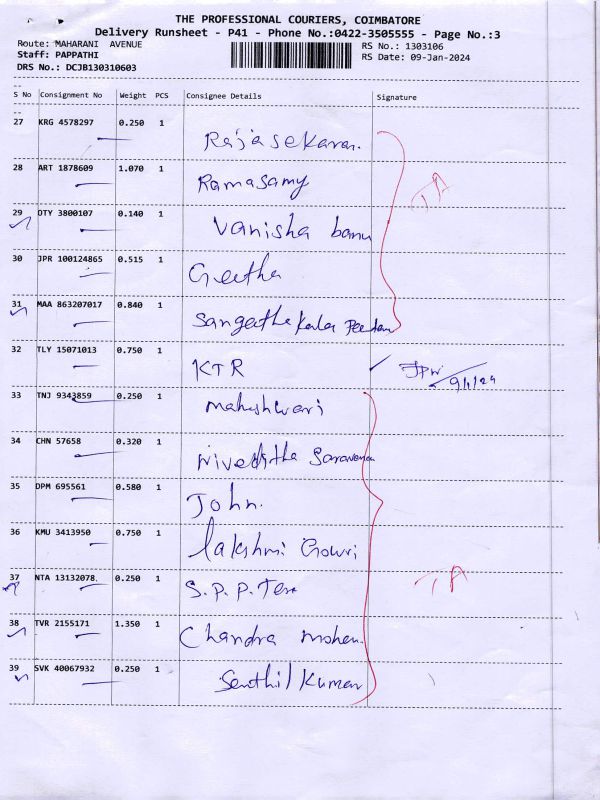 THE PROFESSIONAL COURIERS, COIMBATORE
Delivery Runsheet - P41 - Phone No.:0422-3505555 - Page No.:3
Route: MAHARANI AVENUE RS No.: 1303106
Staff: PAPPATHI RS Date: 09-Jan-2024
DRS No.: DCJB130310603
S No Consignment No Weight PCS Consignee Details Signature
27 KRG 4578297 0.250 1 Rajasekaran.
28 ART 1878609 1.070 1 Ramasamy TA
29 OTY 3800107 0.140 1 Vanisha banu
30 JPR 100124865 0.515 1 Geetha
31 MAA 863207017 0.840 1 Sangeetha Kala
32 TLY 15071013 0.750 1 KTR 9/1/24
33 TNJ 9343859 0.250 1 Maheshwari
34 CHN 57658 0.320 1 Niveditha Saravanan
35 DPM 695561 0.580 1 John.
36 KMU 3413950 0.750 1 Lakshmi Gowri
37 NTA 13132078. 0.250 1 S.P.P. TA
38 TVR 2155171 1.350 1 Chandra Mohan
39 SVK 40067932 0.250 1 Senthil Kumar